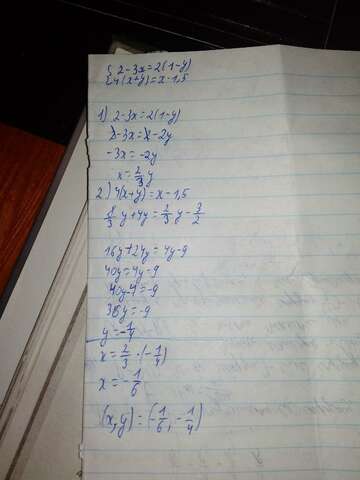 { 2-3x=2(1-y)
{ 4(x+y)=x-1,5
1) 2-3x=2(1-y)
2-3x=2-2y
-3x=-2y
x=2/3 y
2) 4(x+y)=x-1,5
8/3 y+4y=2/3 y-3/2
16y+24y=4y-9
40y=4y-9
40y-4=-9
36y=-9
y=-1/4
x=2/3·(-1/4)
x=-1/6
(x,y)=(-1/6,-1/4)